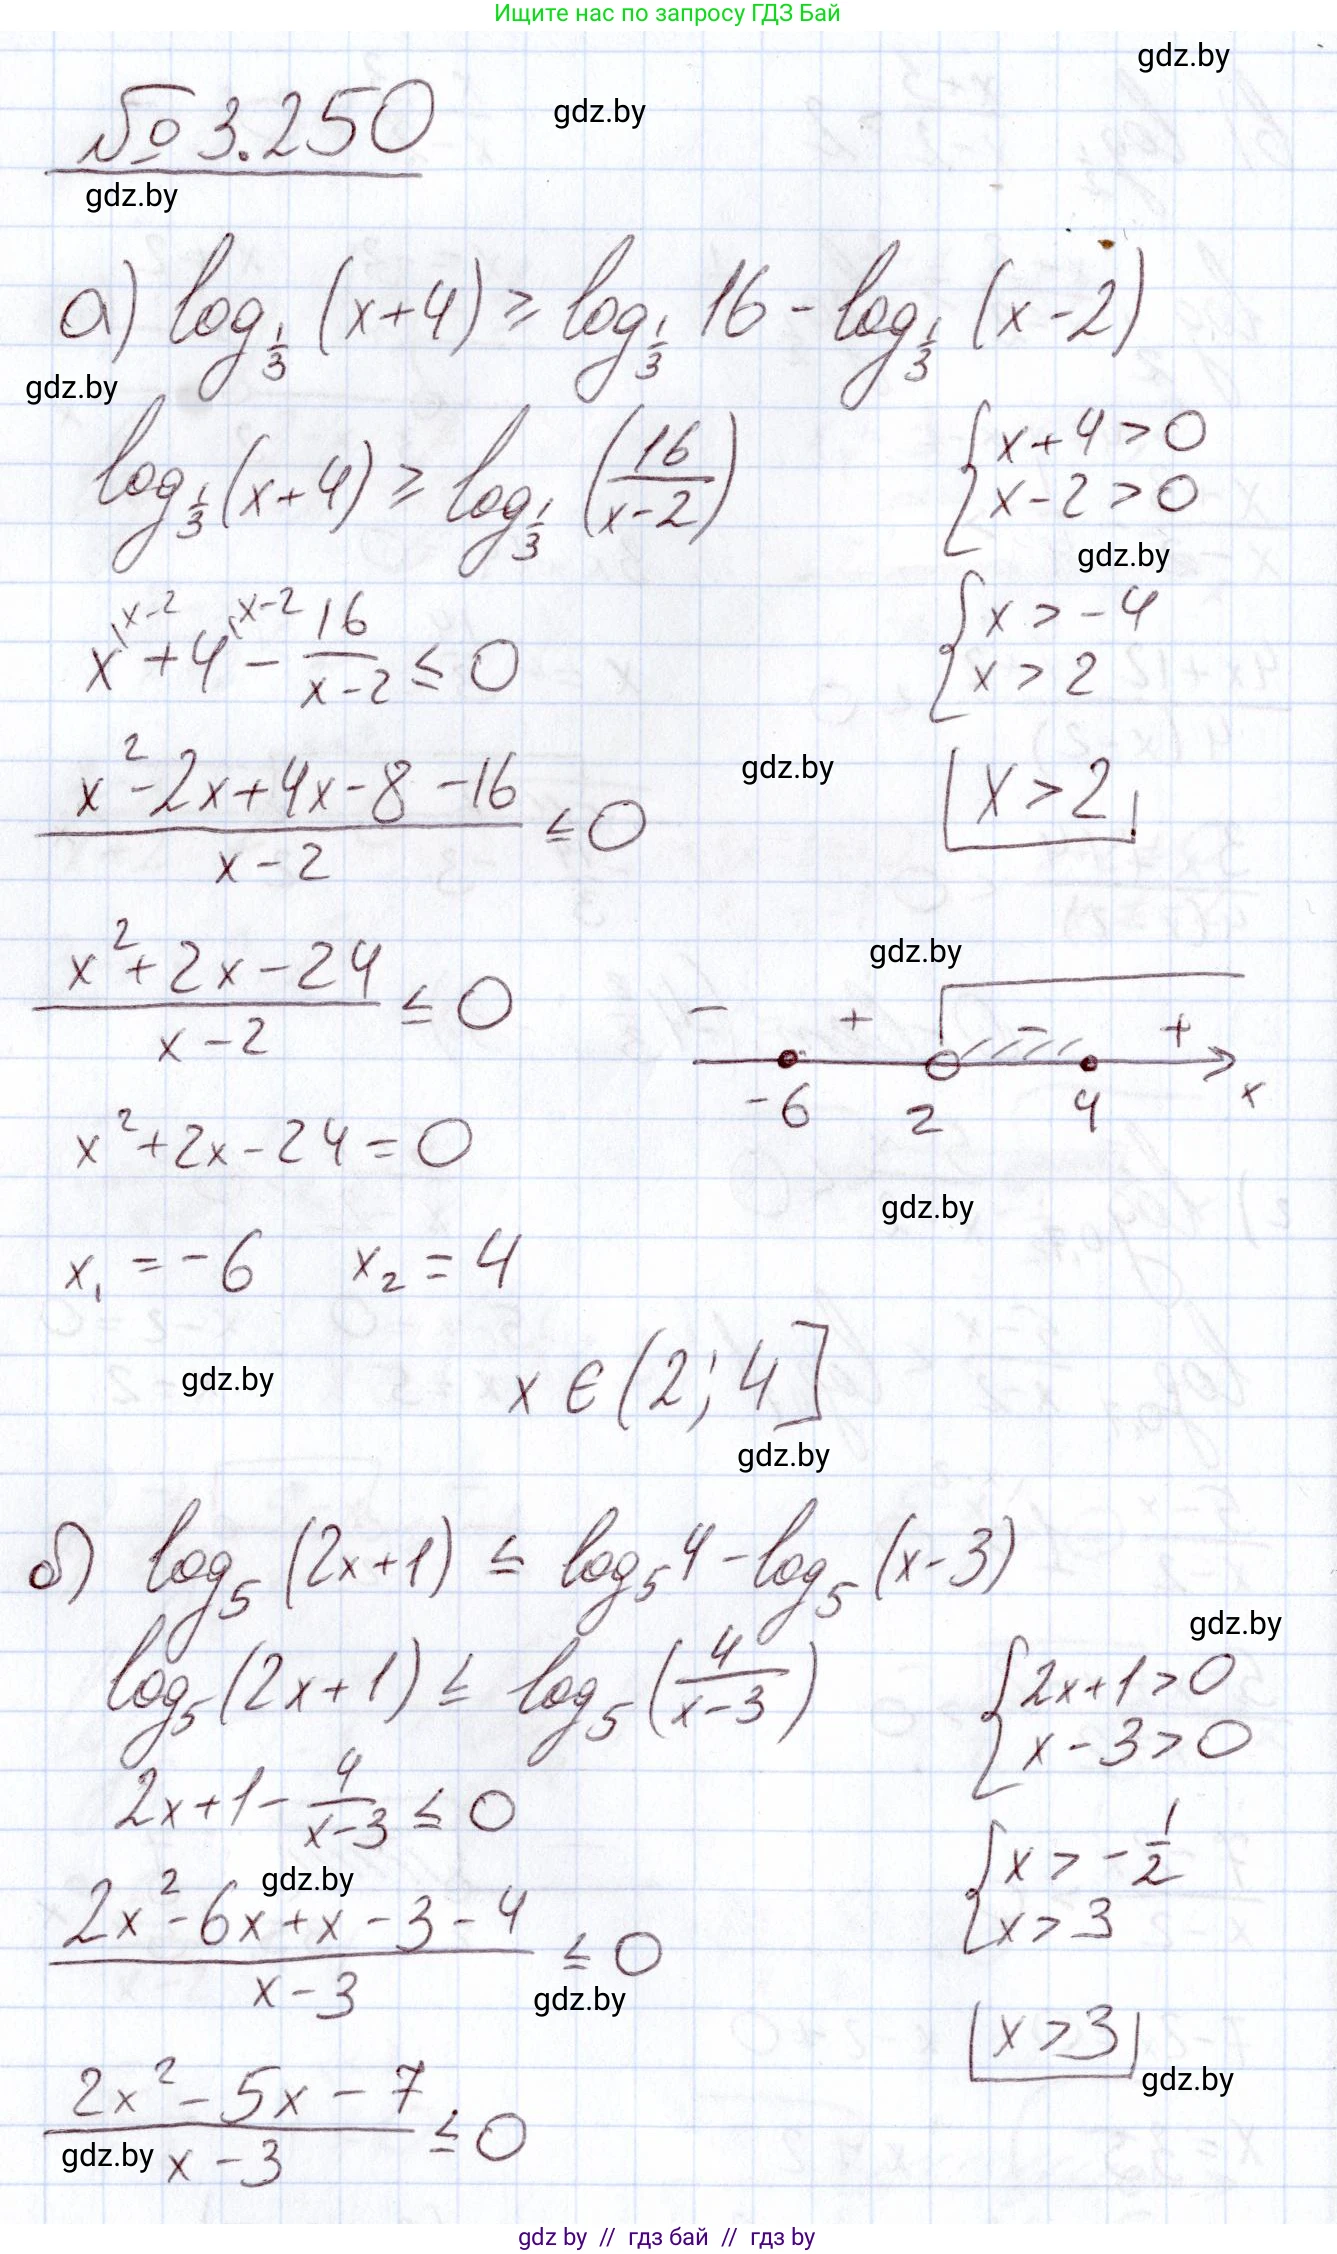 Ищите нас по запросу ГДЗ Бай
gdz.by
№ 3.250
gdz.by
gdz.by
а) log_{1/3} (x+4) ≥ log_{1/3} 16 - log_{1/3} (x-2)
gdz.by
log_{1/3} (x+4) ≥ log_{1/3} (16/(x-2))
{ x+4 > 0
x-2 > 0
gdz.by
x^{\x-2} + 4^{\x-2} - 16/(x-2) ≤ 0
{ x > -4
x > 2
gdz.by
(x² - 2x + 4x - 8 - 16)/(x-2) ≤ 0
x > 2
gdz.by
(x² + 2x - 24)/(x-2) ≤ 0
- + - +
-6 2 4 x
x² + 2x - 24 = 0
gdz.by
x₁ = -6 x₂ = 4
gdz.by
x ∈ (2; 4]
gdz.by
б) log₅ (2x+1) ≤ log₅ 4 - log₅ (x-3)
gdz.by
log₅ (2x+1) ≤ log₅ (4/(x-3))
{ 2x+1 > 0
x-3 > 0
2x+1 - 4/(x-3) ≤ 0
{ x > -1/2
x > 3
gdz.by
(2x² - 6x + x - 3 - 4)/(x-3) ≤ 0
gdz.by
x > 3
gdz.by
(2x² - 5x - 7)/(x-3) ≤ 0
gdz.by
gdz by // гдз бай // гдз by